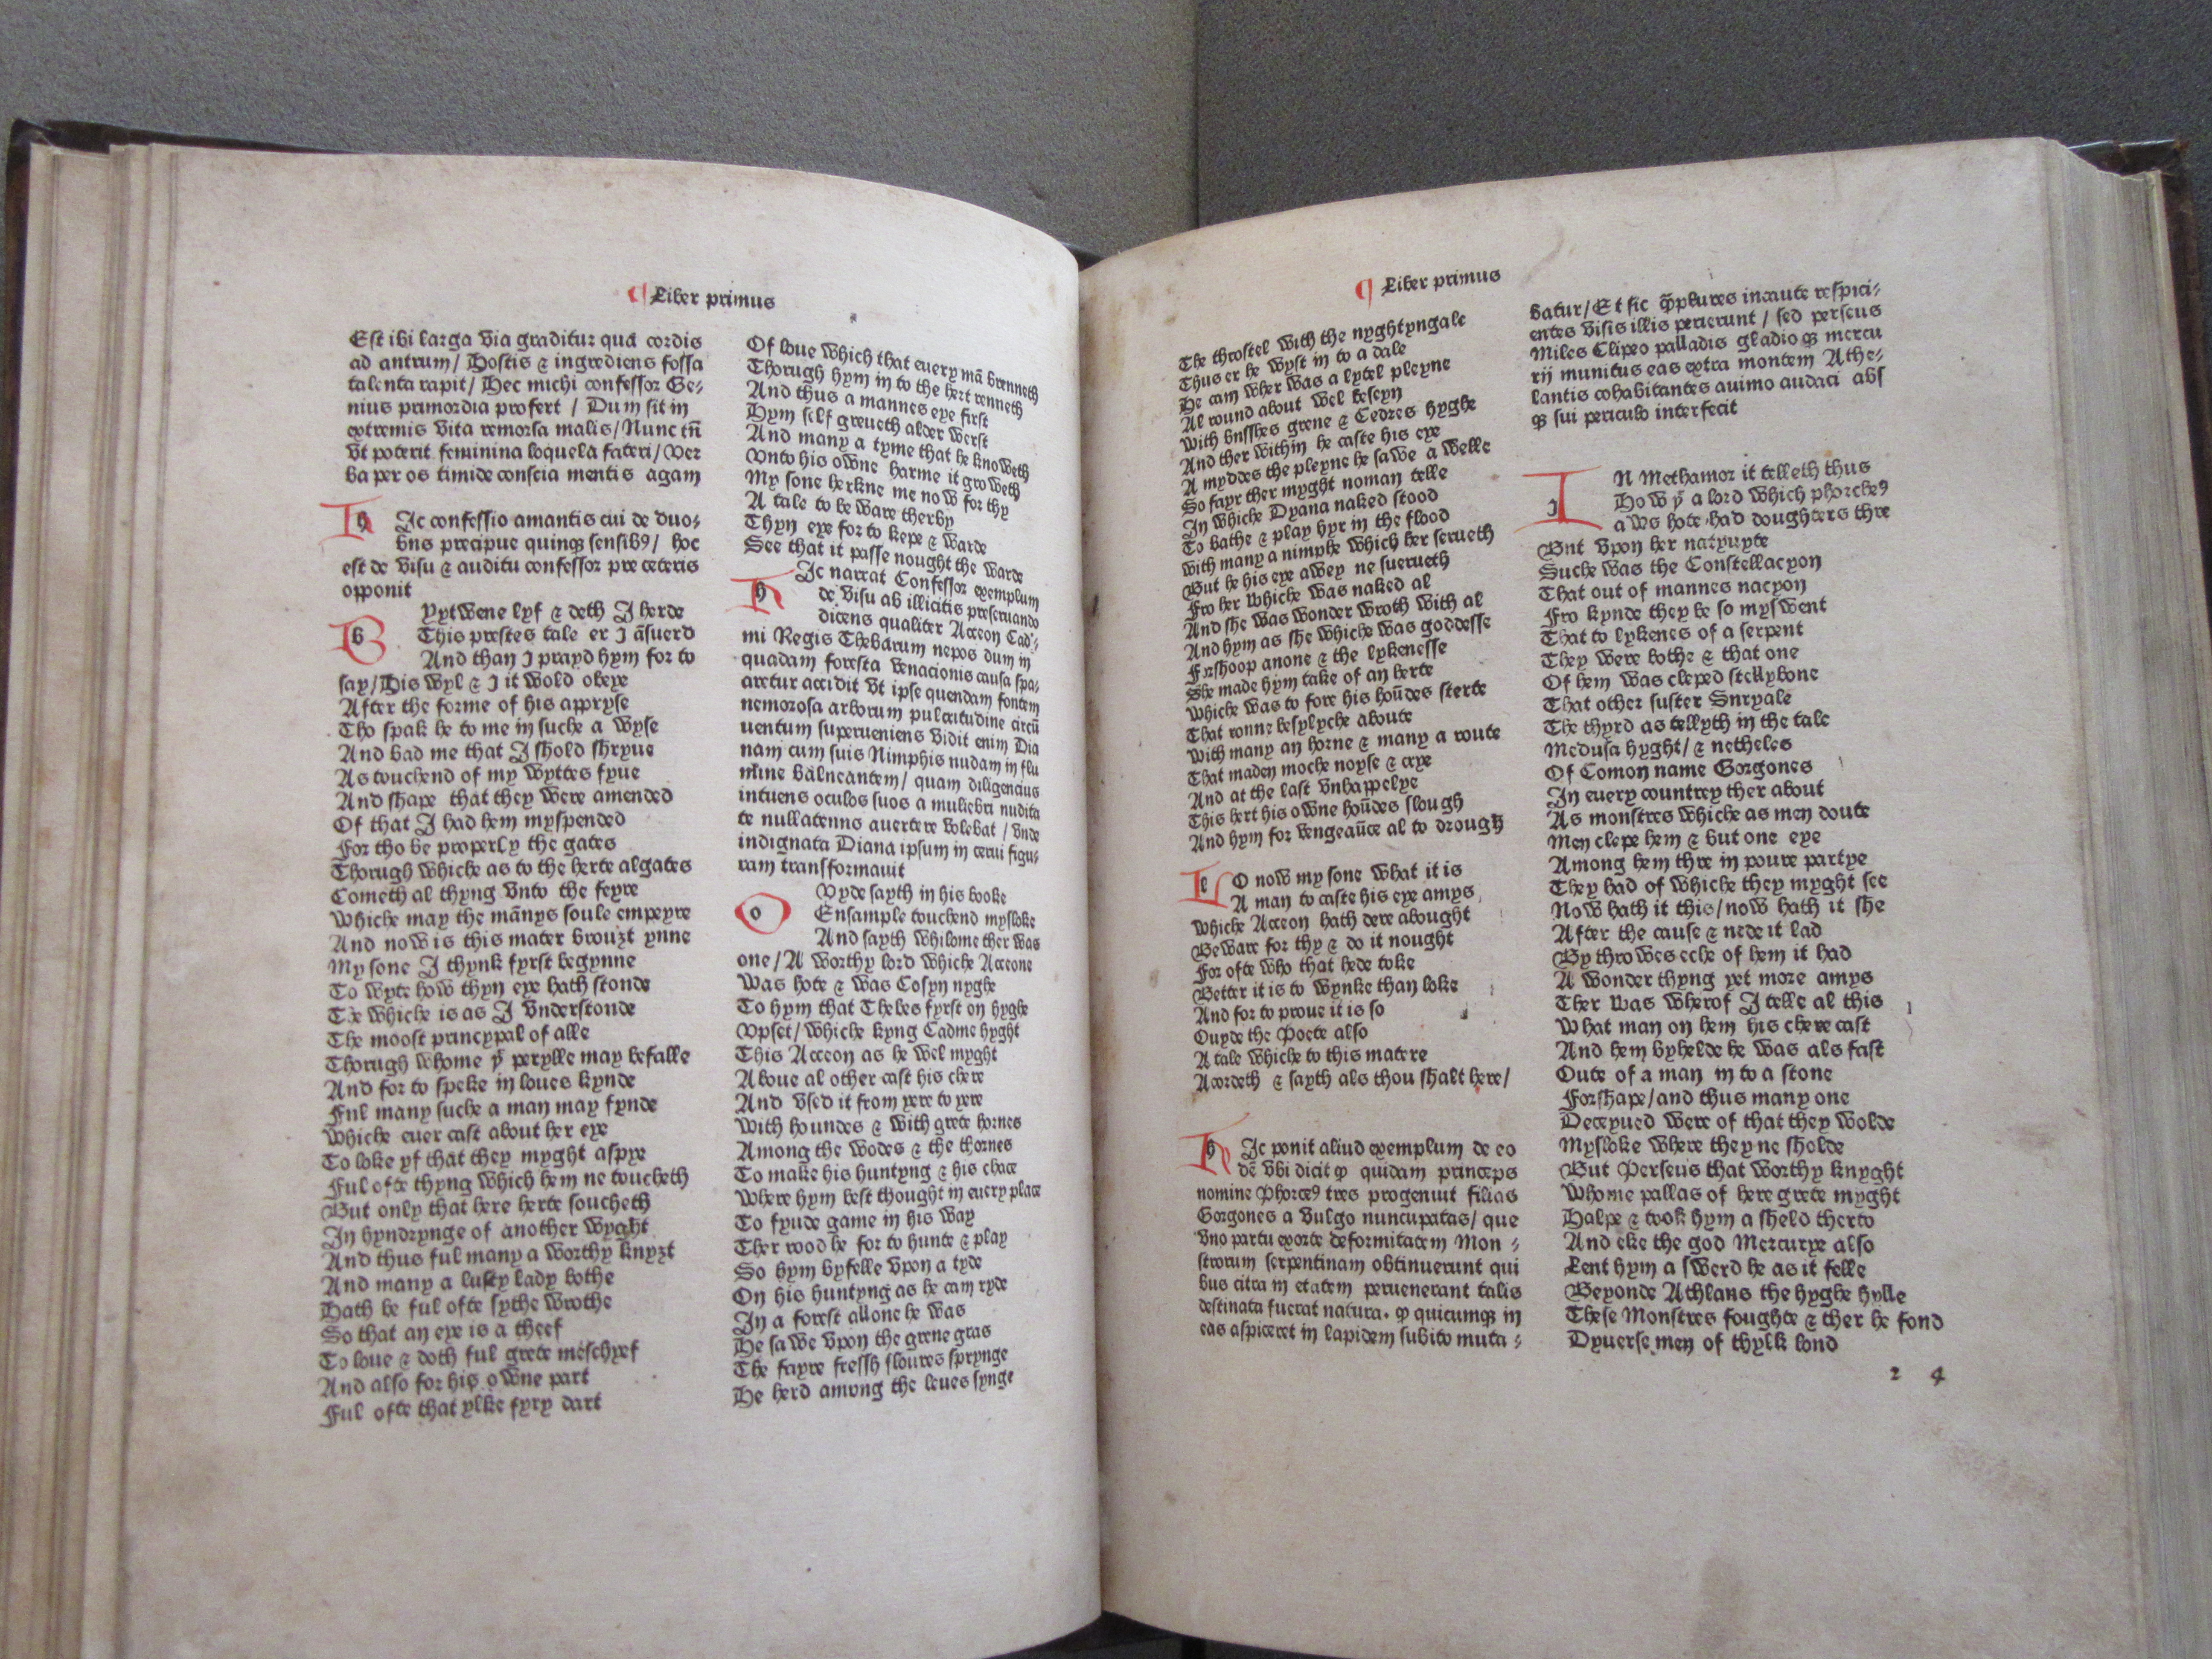 ¶ Liber primus
Est ibi larga via graditur qua cordis
ad antrum / Hostis & ingrediens fossa
talenta rapit / Hec michi confessor Ge-
nius primordia profert / Dum sit in
extremis vita remorsa malis / Nunc tn̄
vt poterit feminina loquela fateri / Ver
ba per os timide conscia mentis agam
h Ic confessio amantis cui de duo-
bus precipue quinqꝫ sensibꝰ / hoc
est de visu & auditu confessor pre ceteris
opponit
b Yytwene lyf & deth I herde
This prestes tale er I āsuerd
And than I prayd hym for to
say / His wyl & I it wold obeye
After the forme of his appryse
Tho spak he to me in suche a wyse
And bad me that I shold shryue
As touchend of my wyttes fyue
And shape that they were amended
Of that I had hem myspended
For tho be properly the gates
Thorugh whiche as to the herte algates
Cometh al thyng vnto the feyre
Whiche may the mānys soule empeyre
And now is this mater brouzt ynne
My sone I thynk fyrst begynne
To wyte how thyn eye hath stonde
The whiche is as I vnderstonde
The moost pryncypal of alle
Thorugh whome yͭ perylle may befalle
And for to speke in loues kynde
Ful many suche a man may fynde
Whiche euer cast about her eye
To loke yf that they myght aspye
Ful ofte thyng which hem ne toucheth
But only that here herte soucheth
In hyndrynge of another wyght
And thus ful many a worthy knyzt
And many a lusty lady bothe
Hath be ful ofte sythe wrothe
So that an eye is a theef
To loue & doth ful grete meschyef
And also for his owne part
Ful ofte that ylke fyry dart
Of loue which that euery mā brenneth
Thorugh hym in to the hert renneth
And thus a mannes eye first
Hym self greueth alder werst
And many a tyme that he knoweth
Vnto his owne harme it groweth
My sone herkne me now for thy
A tale to be ware therby
Thyn eye for to kepe & warde
See that it passe nought the warde
h Ic narrat Confessor exemplum
de visu ab illicitis preseruando
dicens qualiter Acteon Cad-
mi Regis Thebarum nepos dum in
quadam foresta venacionis causa spa-
ciretur accidit vt ipse quendam fontem
nemorosa arborum pulcritudine circū
uentum superueniens vidit enim Dia
nam cum suis Nimphis nudam in flu
mine balneantem / quam diligencius
intuens oculos suos a muliebri nudita
te nullatenus auertere volebat / vnde
indignata Diana ipsum in cerui figu-
ram transformauit
o Vyde sayth in his booke
Ensample touchend mysloke
And sayth whilome ther was
one / A worthy lord whiche Acteone
Was hote & was Cosyn nyghe
To hym that Thebes fyrst on hyghe
Vpset / whiche kyng Cadme hyght
This Acteon as he wel myght
Aboue al other cast his chere
And vsed it from yere to yere
With houndes & with grete hornes
Among the wodes & the thornes
To make his huntyng & his chace
Where hym best thought in euery place
To fynde game in his way
Ther rood he for to hunte & play
So hym byfelle vpon a tyde
On his huntyng as he cam ryde
In a forest allone he was
He sawe vpon the grene gras
The fayre fressh floures sprynge
He herd among the leues synge
¶ Liber primus
The throstel with the nyghtyngale
Thus er he wyst in to a dale
He cam wher was a lytel pleyne
Al round about wel beseyn
With busshes grene & Cedres hyghe
And ther within he caste his eye
A myddes the pleyne he sawe a welle
So fayr ther myght noman telle
In whiche Dyana naked stood
To bathe & play hyr in the flood
With many a nimphe which her serueth
But he his eye awey ne suerueth
Fro her whiche was naked al
And she was wonder wroth with al
And hym as she whiche was goddesse
Forshoop anone & the lykenesse
She made hym take of an herte
Whiche was to fore his hoūdes sterte
That ronne besylyche aboute
With many an horne & many a route
That maden moche noyse & crye
And at the last vnhappelye
This hert his owne hoūdes slough
And hym for vengeaūce al to drough
l O now my sone what it is
A man to caste his eye amys
Whiche Acteon hath dere abought
Beware for thy & do it nought
For ofte who that hede toke
Better it is to wynke than loke
And for to proue it is so
Ouyde the Poete also
A tale whiche to this matere
Acordeth & sayth als thou shalt here /
h Ic ponit aliud exemplum de eo
dē vbi dicit ꝙ quidam princeps
nomine Phorceꝰ tres progenuit filias
Gorgones a vulgo nuncupatas / que
vno partu exorte deformitatem Mon -
strorum serpentinam obtinuerunt qui
bus citra m etatem peruenerant talis
destinata fuerat natura. ꝙ quicumqꝫ in
eas aspiceret in lapidem subito muta -
batur / Et sic q̄plures incaute respici-
entes visis illis perierunt / sed perseus
Miles Clipeo palladis gladio qꝫ mercu
rij munitus eas extra montem Athe-
lantis cohabitantes auimo audaci abs
qꝫ sui periculo interfecit
I N Methamor it telleth thus
How yͭ a lord which phorcheꝰ
aws hote had doughters thre
But vpon her natyuyte
Suche was the Constellacyon
That out of mannes nacyon
Fro kynde they be so myswent
That to lykenes of a serpent
They were bothe & that one
Of hem was cleped stellybone
That other suster Suryale
The thyrd as tellyth in the tale
Medusa hyght / & netheles
Of Comon name Gorgones
In euery countrey ther about
As monstres whiche as men doute
Men clepe hem & but one eye
Among hem thre in poure partye
They had of whiche they myght see
Now hath it this / now hath it she
After the cause & nede it lad
By throwes eche of hem it had
A wonder thyng yet more amys
Ther was wherof I telle al this
What man on hem his chere cast
And hem byhelde he was als fast
Oute of a man in to a stone
Forshape / and thus many one
Deceyued were of that they wolde
Mysloke where they ne sholde
But Perseus that worthy knyght
Whome pallas of here grete myght
Halpe & took hym a sheld therto
And eke the god Mercurye also
Lent hym a swerd he as it felle
Beyonde Athlans the hyghe hylle
These Monstres foughte & ther he fond
Dyuerse men of thylk lond
2 4